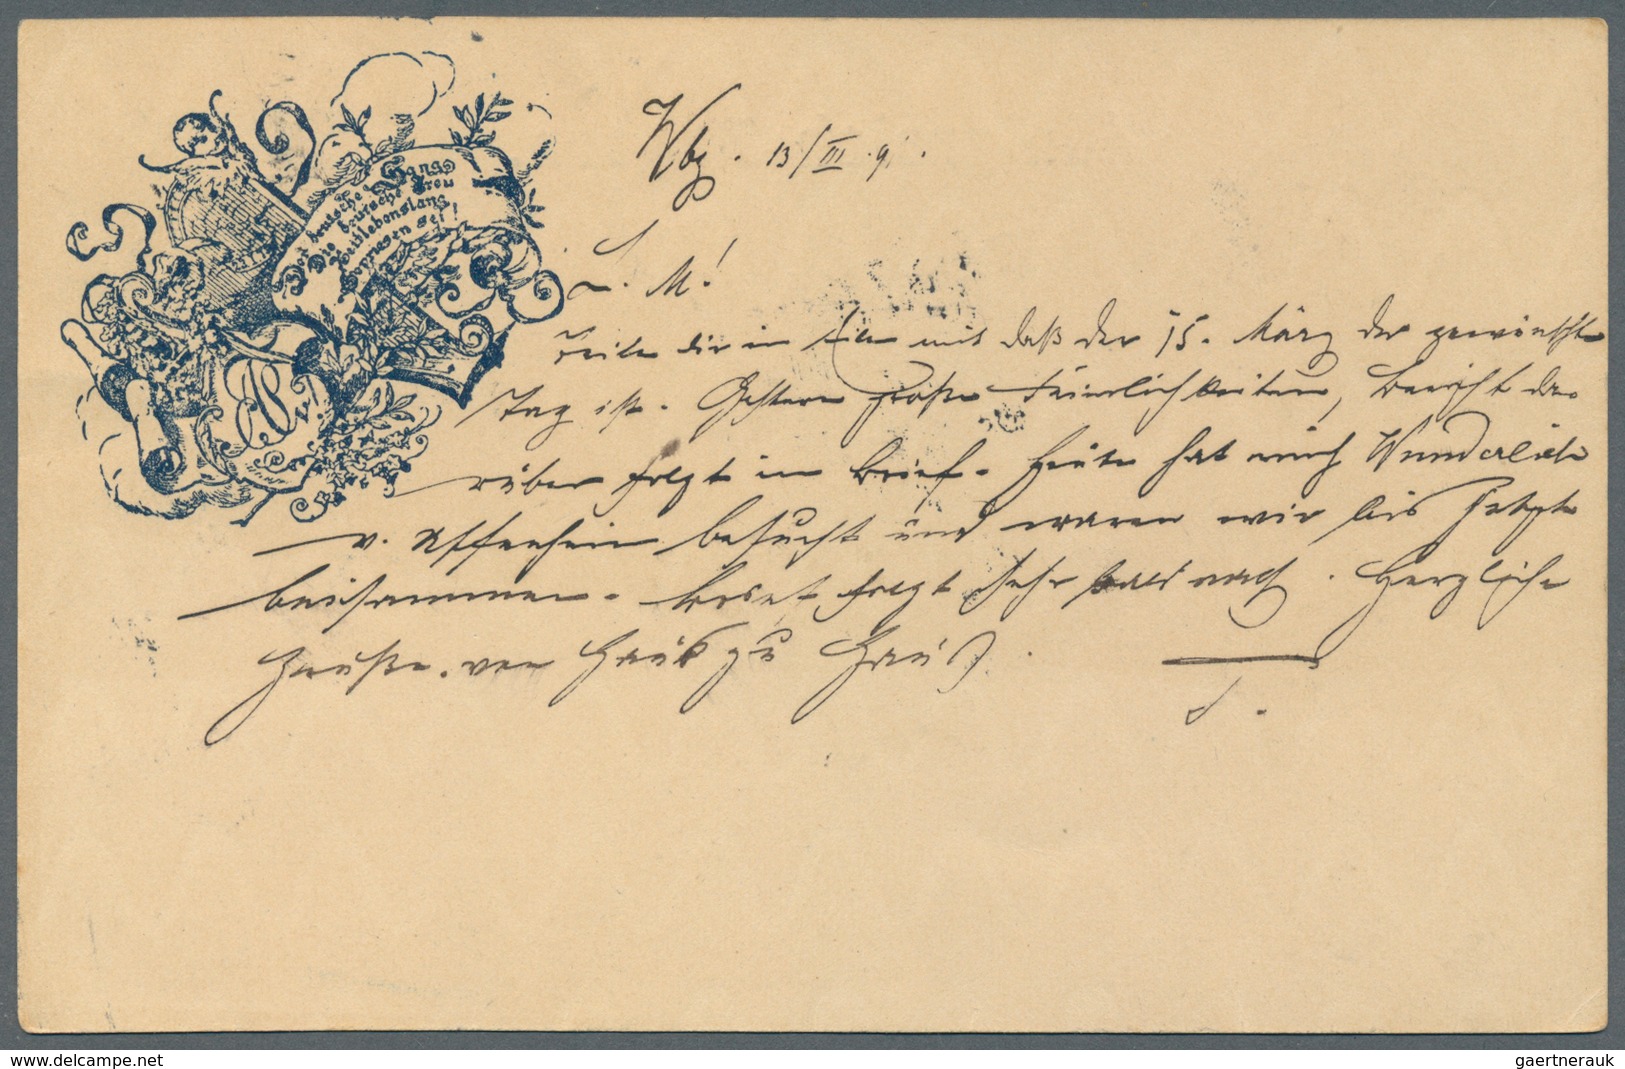 Dem deutsche Sang
Die deutsche Treu
Zeitlebenslang
Gepriesen sei!
Wbg. 13/III. 91.
L. M!
Teile dir in Eile mit daß der 15. März der gewünschte
Tag ist. Gestern große Feierlichkeiten, Bericht da-
rüber folgt im Brief. Heute hat mich Wunderlich
v. Uffenheim besucht und waren wir bis jetzt
beisammen. folgt sehr bald nach. Herzliche
Grüße von Haus zu Haus.
delcampe.net
gaertnerauk